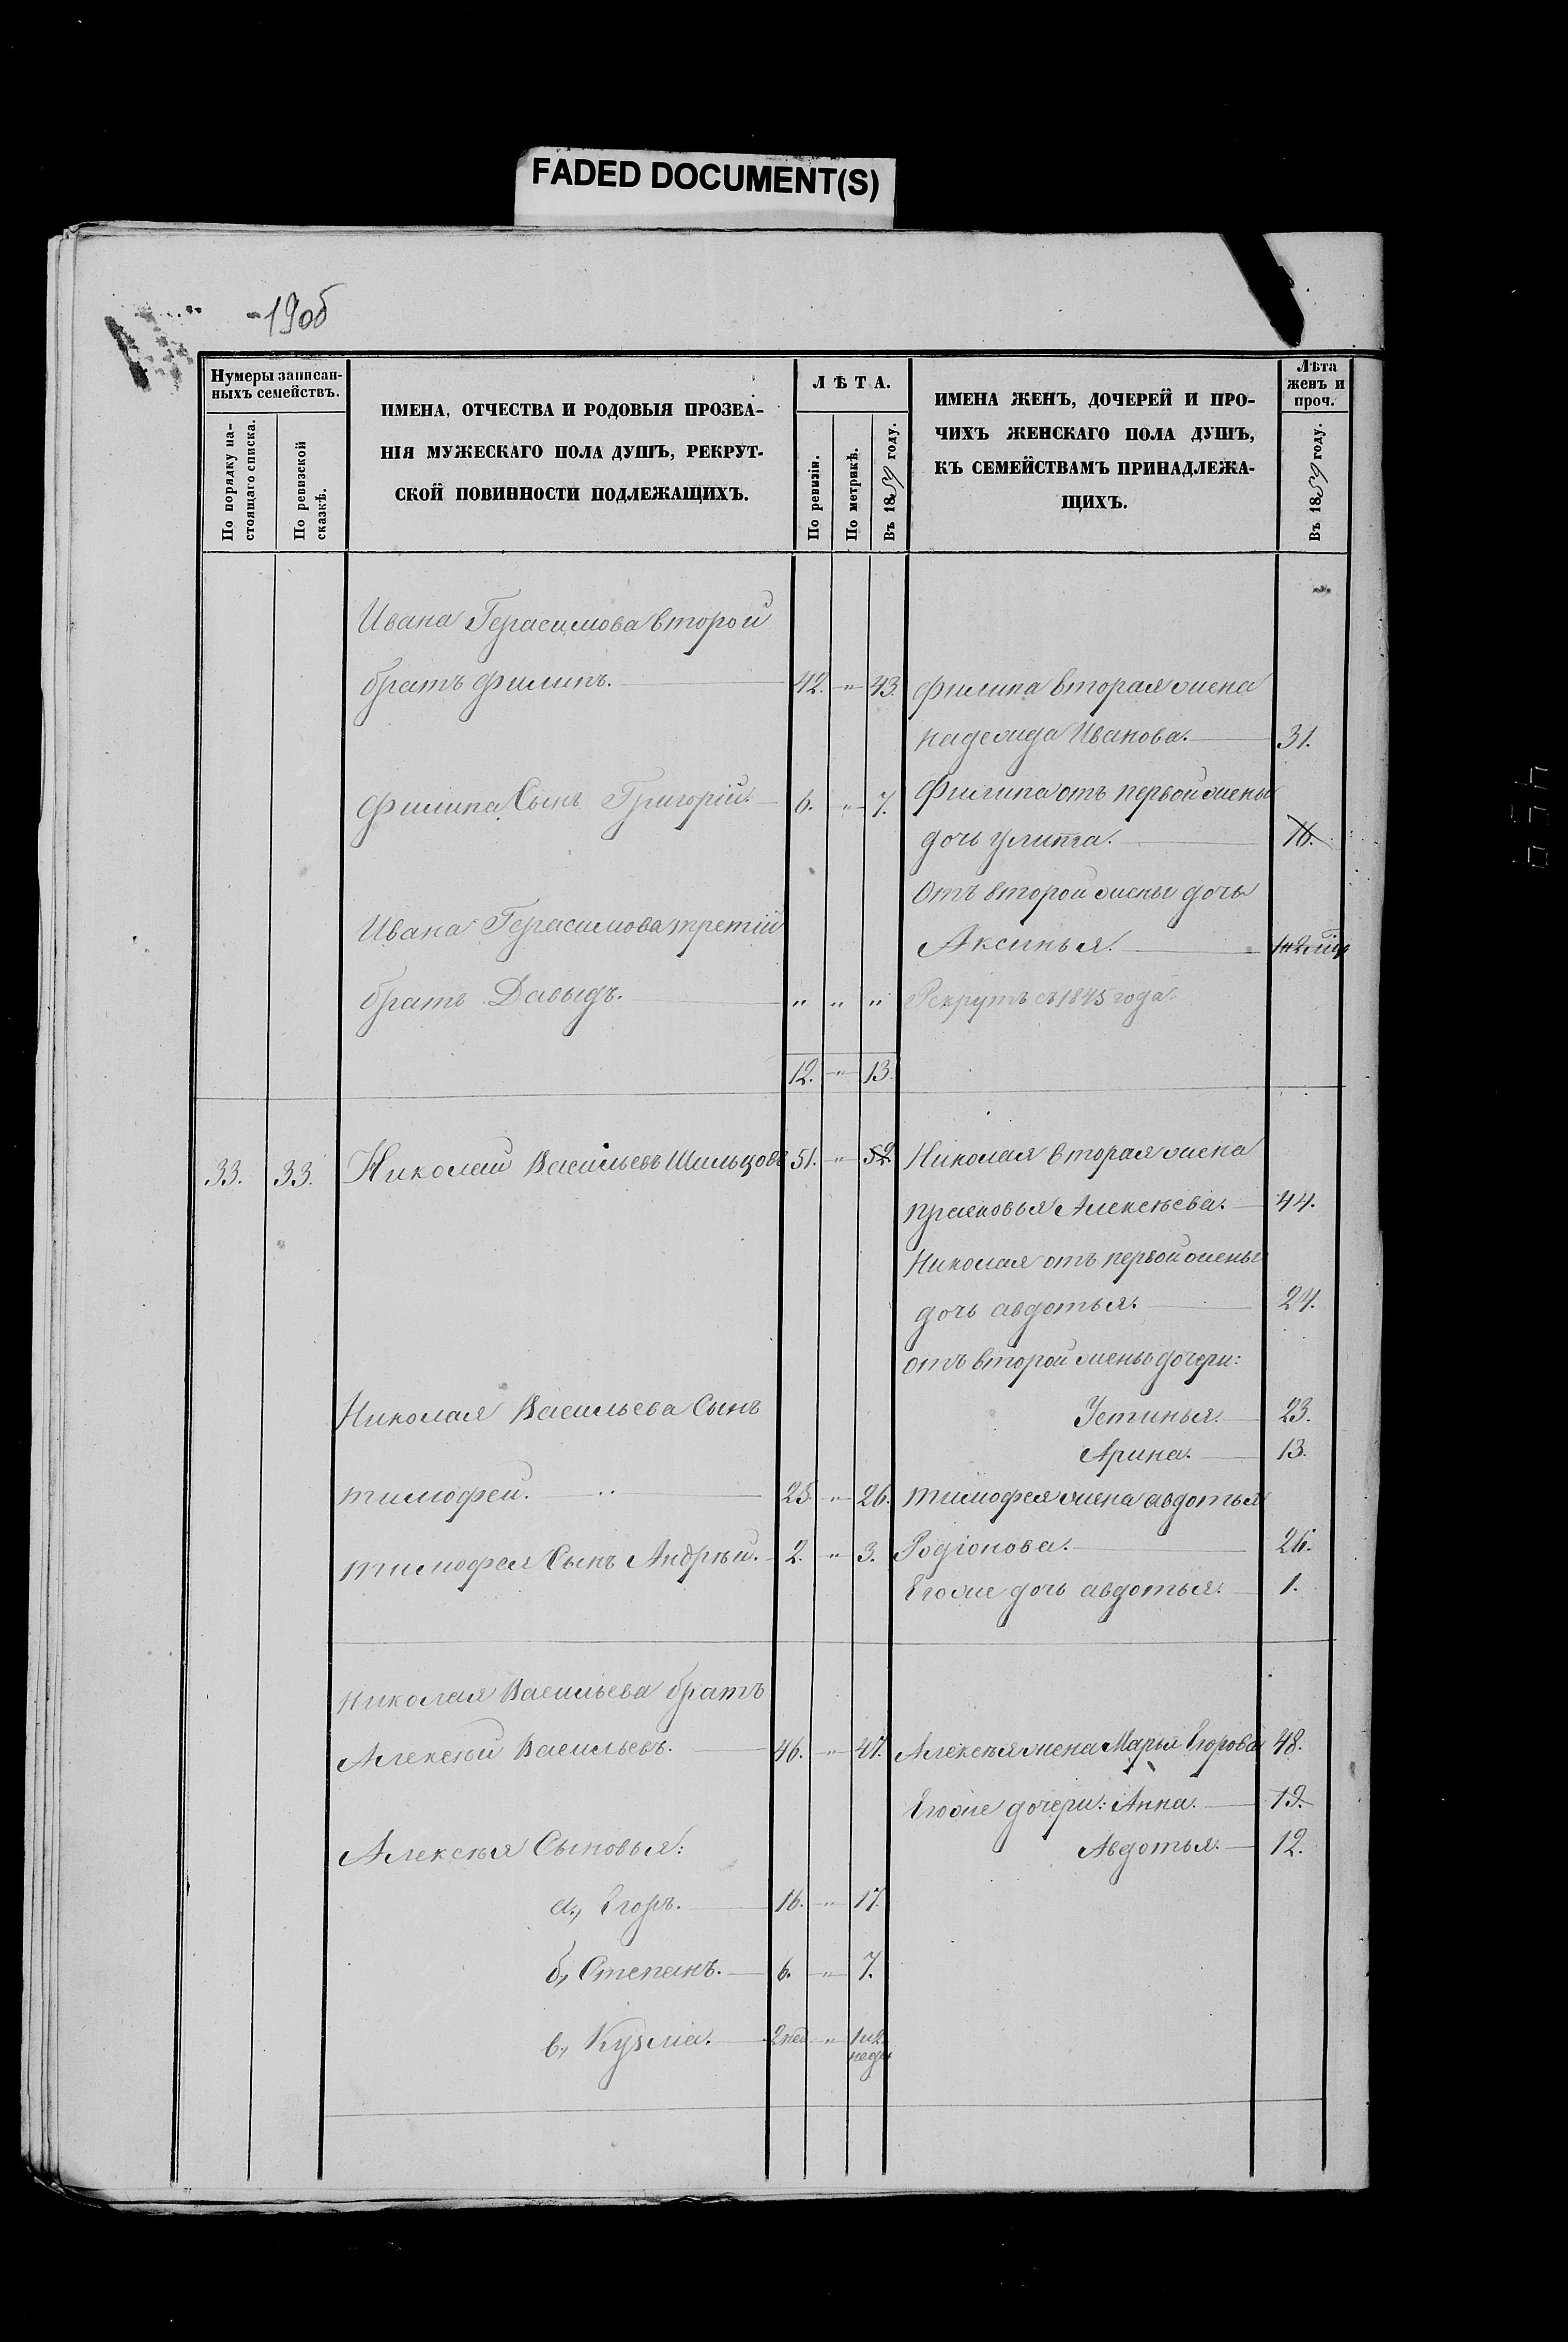 FADED DOCUMENT(S)
190б
Нумеры записан-
ныхъ семействъ.
По порядку на-
стоящаго списка.
По ревизской
сказкѣ.
ИМЕНА, ОТЧЕСТВА И РОДОВЫЯ ПРОЗВА-
НІЯ МУЖЕСКАГО ПОЛА ДУШЪ, РЕКРУТ-
СКОЙ ПОВИННОСТИ ПОДЛЕЖАЩИХЪ.
ЛѢТА.
По ревизіи.
По метрикѣ.
Въ 1859 году.
ИМЕНА ЖЕНЪ, ДОЧЕРЕЙ И ПРО-
ЧИХЪ ЖЕНСКАГО ПОЛА ДУШЪ,
КЪ СЕМЕЙСТВАМЪ ПРИНАДЛЕЖА-
ЩИХЪ.
Лѣта
женъ и
проч.
Въ 1859 году.
Ивана Герасимова второй
братъ Филипъ. 42. " 43. Филипа вторая жена
Надежда Иванова. 31.
Филипа Сынъ Григорій. 6. " 7. Филипа отъ первой жены
дочь Улита. 16.
Отъ второй жены дочь
Ивана Герасимова третій
Аксинья.
братъ Давыдъ. " " " Рекрутъ съ 1845 года.
12. " 13.
33. 33. Николай Васильевъ Шильцовъ 51. " 52. Николая вторая жена
Прасковья Алексѣева. 44.
Николая отъ первой жены
дочь Авдотья. 24.
отъ второй жены дочери:
Николая Васильева Сынъ
Устинья. 23.
Арина. 13.
Тимофей. " 25. " 26. Тимофея жена Авдотья
Тимофея Сынъ Андрѣй. 2. " 3. Родіонова. 26.
Егоже дочь Авдотья. 1.
Николая Васильева братъ
Алексѣй Васильевъ. 46. " 47. Алексѣя жена Марья Егорова 48.
Егоже дочери: Анна. 19.
Алексѣя Сыновья:
Авдотья. 12.
а., Егоръ. 16. " 17.
б., Степанъ. 6. " 7.
в., Кузма. 2 нед " 1 и 2
недѣ
459